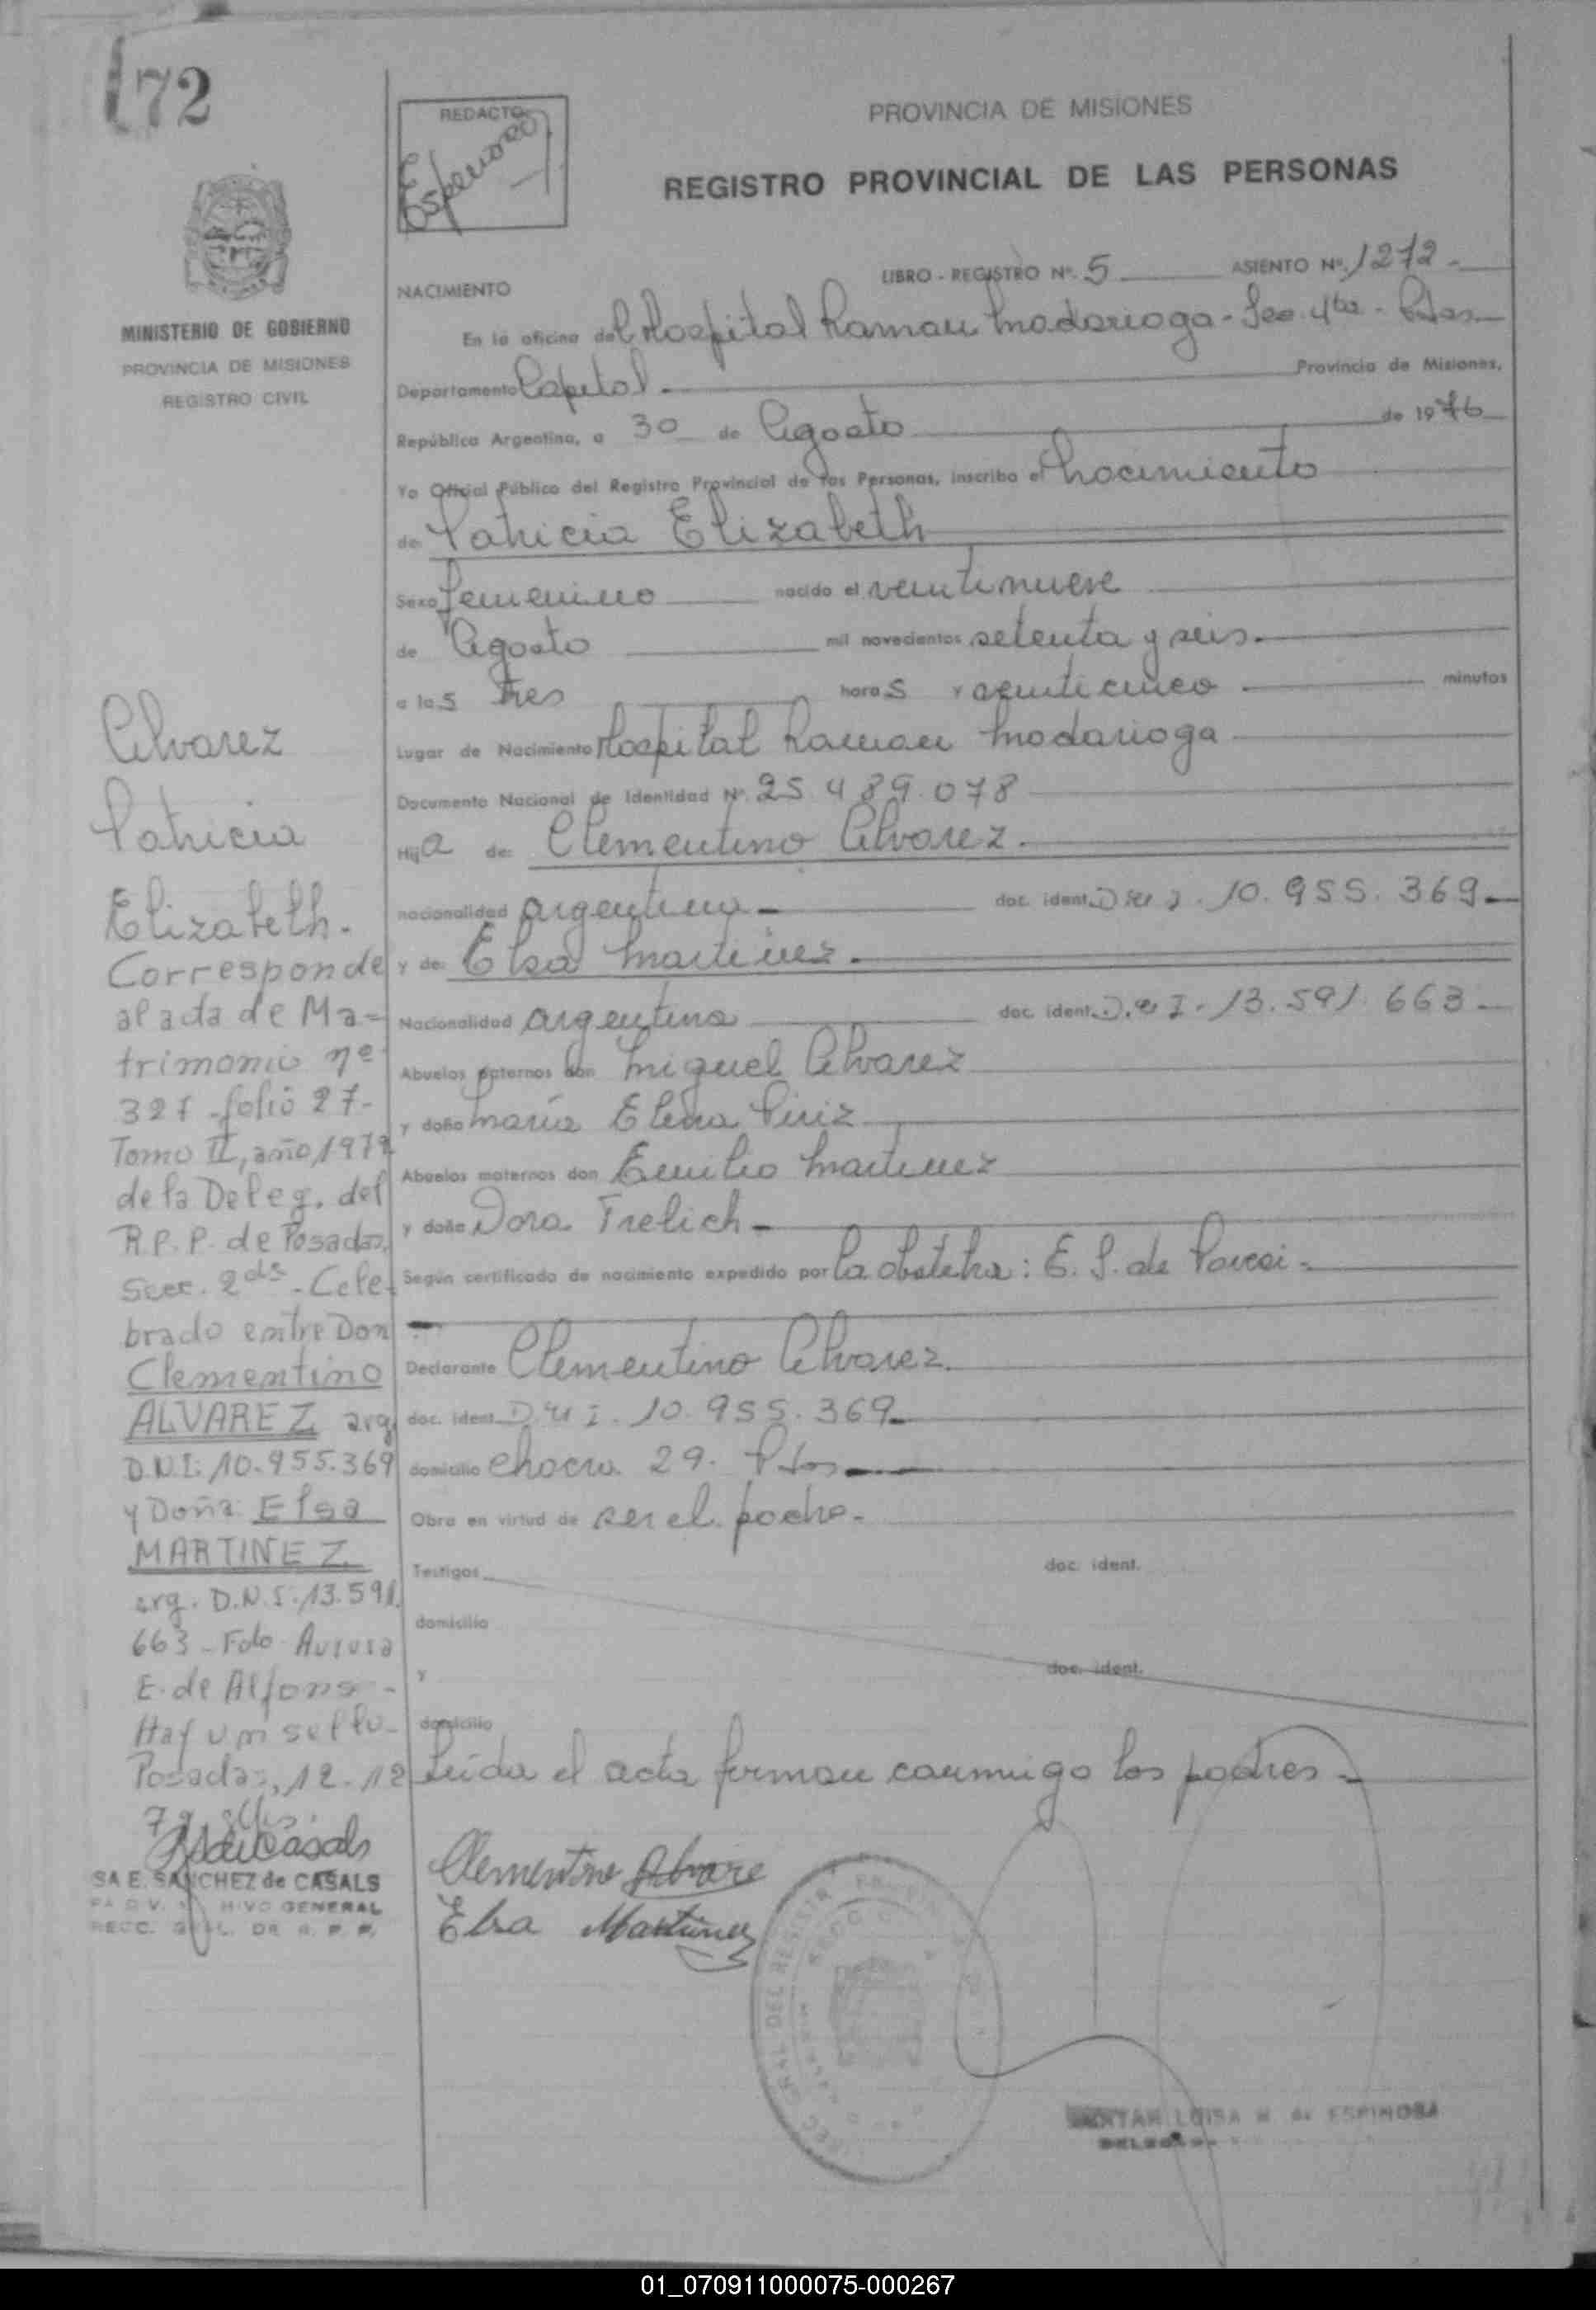 172
REDACTO
PROVINCIA DE MISIONES
REGISTRO PROVINCIAL DE LAS PERSONAS
MINISTERIO DE GOBIERNO
PROVINCIA DE MISIONES
REGISTRO CIVIL
LIBRO - REGISTRO Nº. 5 ASIENTO Nº. 1272.-
NACIMIENTO
En la oficina del Hospital Ramon Madariaga - Sec. 4ta - Pdas
Departamento Capital. Provincia de Misiones,
República Argentina, a 30 de Agosto de 1976
Yo Oficial Público del Registro Provincial de las Personas, inscribo el nacimiento
de Patricia Elizabeth
Sexo femenino nacido el veintinueve
de Agosto mil novecientos setenta y seis.
a las tres horas y veinticinco minutos
Lugar de Nacimiento Hospital Ramon Madariaga
Documento Nacional de Identidad Nº. 25.489.078
Hija de: Clementino Alvarez.
nacionalidad argentino doc. ident. DNI. 10.955.369
y de: Elsa Martinez.
Nacionalidad argentina doc. ident. D.N.I. 13.591.663
Abuelos paternos don Miguel Alvarez
y doña Maria Elena Piriz
Abuelos maternos don Emilio Martinez
y doña Dora Frelich
Según certificado de nacimiento expedido por la obstetra: E. S. de
Declarante Clementino Alvarez.
doc. ident. DNI. 10.955.369
domicilio chacra 29. Pdas
Obra en virtud de ser el padre.
Testigos doc. ident.
domicilio
y doc. ident.
domicilio
Leida el acta firman conmigo los padres
Clementino Alvare
Elsa Martinez
Alvarez
Patricia
Elizabeth.
Corresponde
al acta de Ma=
trimonio nº
327 - folio 27-
Tomo II, año 1979
de la Deleg. del
R.P.P. de Posadas,
Secc. 2da - Cele-
brado entre Don
Clementino
ALVAREZ arg.
D.N.I: 10.955.369
y Doña: Elsa
MARTINEZ
arg. D.N.I. 13.591.
663 - Fdo Aurora
E. de Alfonso -
Hay un sello -
Posadas, 12.12
79
SA E. SANCHEZ de CASALS
GENERAL
LUISA M. de ESPINOSA
01_070911000075-000267